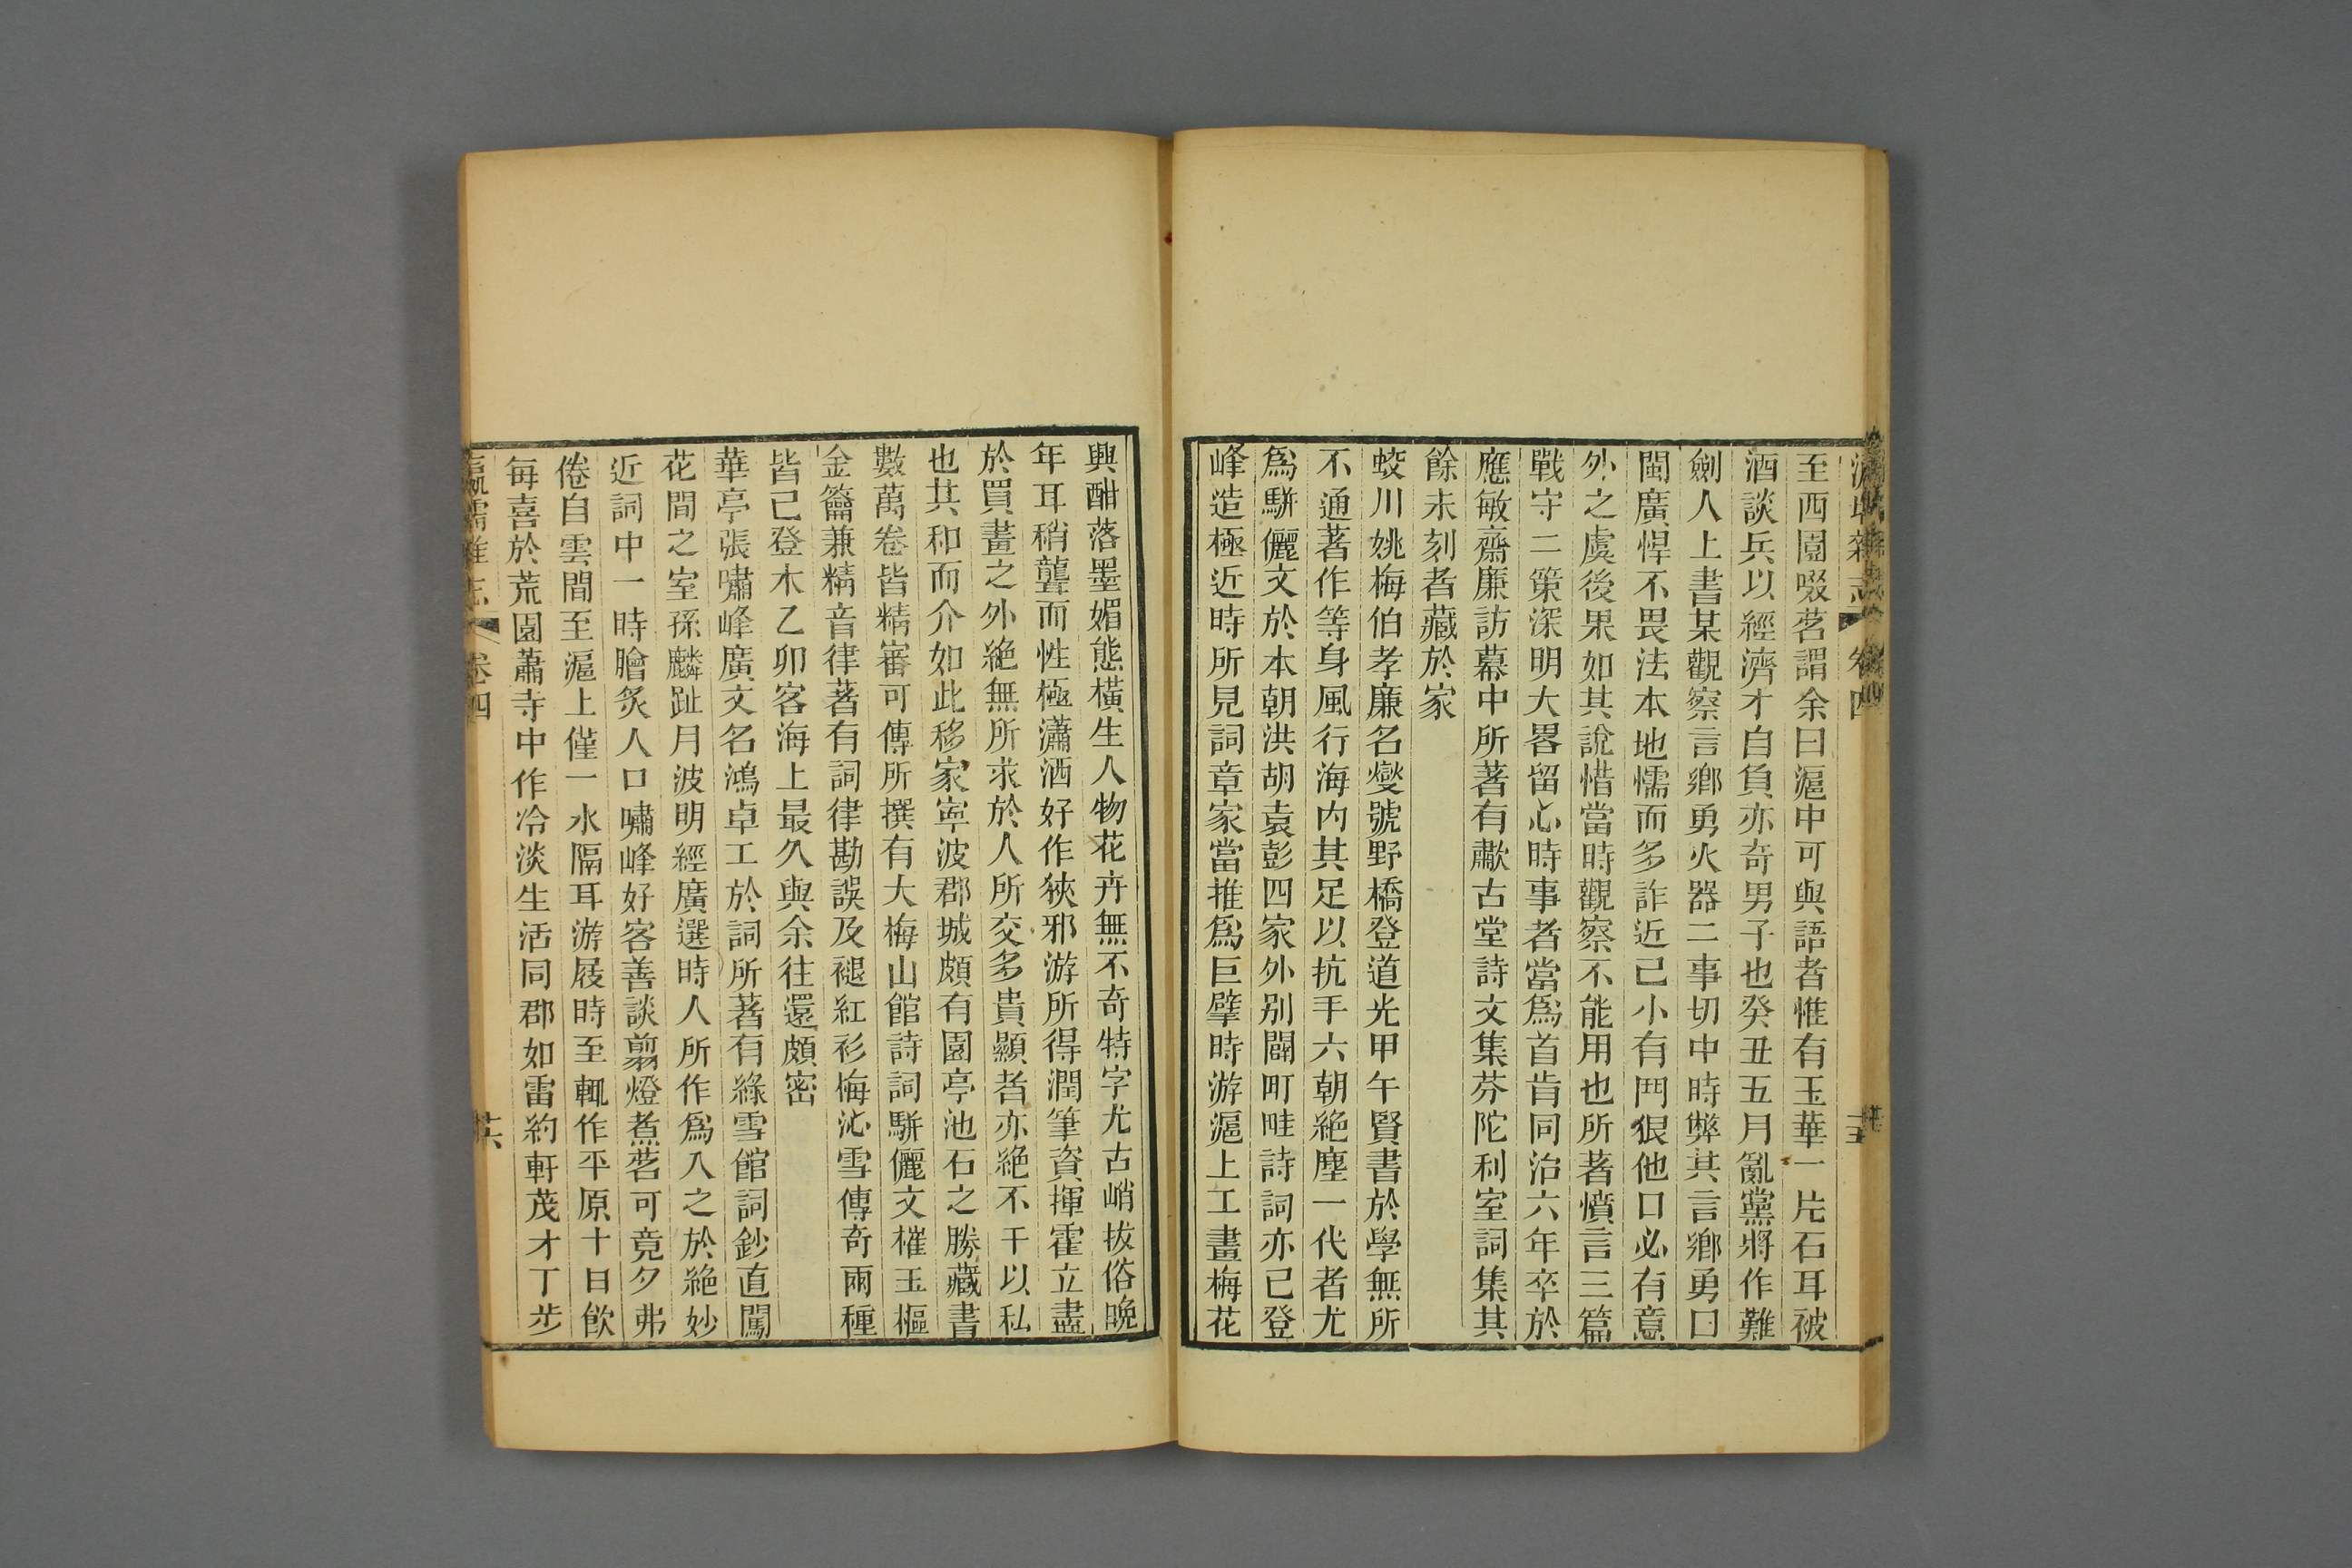 至西園啜茗謂余曰滬中可與語者惟有玉華一片石耳被
酒談兵以經濟才自負亦奇男子也癸丑五月亂黨將作難
劍人上書某觀察言鄉勇火器二事切中時弊其言鄉勇曰
閩廣悍不畏法本地懦而多詐近已小有鬥狠他口必有意
外之虞後果如其說惜當時觀察不能用也所著憤言三篇
戰守二策深明大畧留心時事者當爲首肯同治六年卒於
應敏齋廉訪幕中所著有歗古堂詩文集芬陀利室詞集其
餘未刻者藏於家
蛟川姚梅伯孝廉名燮號野橋登道光甲午賢書於學無所
不通著作等身風行海内其足以抗手六朝絶塵一代者尤
爲駢儷文於本朝洪胡袁彭四家外别闢町畦詩詞亦已登
峰造極近時所見詞章家當推爲巨擘時游滬上工畫梅花
興酣落墨媚態橫生人物花卉無不奇特字尤古峭拔俗晩
年耳稍聾而性極瀟洒好作狹邪游所得潤筆資揮霍立盡
於買畫之外絶無所求於人所交多貴顯者亦絶不干以私
也其和而介如此移家寧波郡城頗有園亭池石之勝藏書
數萬卷皆精審可傳所撰有大梅山館詩詞駢儷文槯玉樞
金籥兼精音律著有詞律勘誤及褪紅衫梅沁雪傳奇兩種
皆已登木乙卯客海上最久與余往還頗密
華亭張嘯峰廣文名鴻卓工於詞所著有綠雪館詞鈔直闖
花間之室孫麟趾月波明經廣選時人所作爲入之於絶妙
近詞中一時膾炙人口嘯峰好客善談翦燈煮茗可竟夕弗
倦自雲間至滬上僅一水隔耳游屐時至輒作平原十日飮
每喜於荒園蕭寺中作冷淡生活同郡如雷約軒茂才丁步
卷四